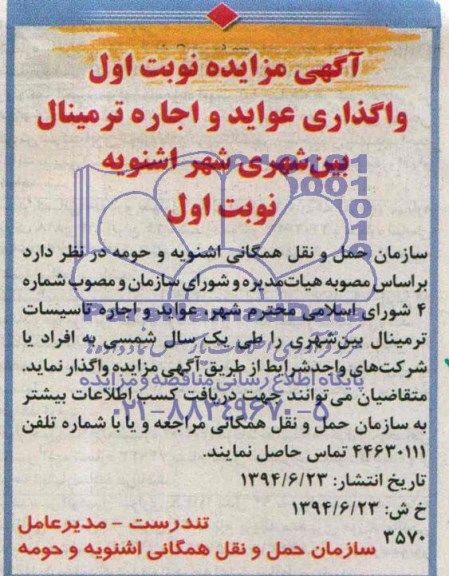 آگهی مزایده نوبت اول
واگذاری عواید و اجاره ترمینال
بین‌شهری شهر اشنویه
نوبت اول
سازمان حمل و نقل همگانی اشنویه و حومه در نظر دارد
براساس مصوبه هیات‌مدیره و شورای سازمان و مصوب شماره
۴ شورای اسلامی محترم شهر، عواید و اجاره تاسیسات
ترمینال بین‌شهری را طی یک سال شمسی به افراد یا
شرکت‌های واجدشرایط از طریق آگهی مزایده واگذار نماید.
متقاضیان می‌توانند جهت دریافت کسب اطلاعات بیشتر
به سازمان حمل و نقل همگانی مراجعه و یا با شماره تلفن
۴۴۶۳۰۱۱۱ تماس حاصل نمایند.
تاریخ انتشار: ۱۳۹۴/۶/۲۳
خ ش: ۱۳۹۴/۶/۲۳
۳۵۷۰
تندرست - مدیرعامل
سازمان حمل و نقل همگانی اشنویه و حومه
ParsNamadData
پایگاه اطلاع رسانی مناقصه و مزایده
۰۲۱-۸۸۳۴۹۶۷۰-۵